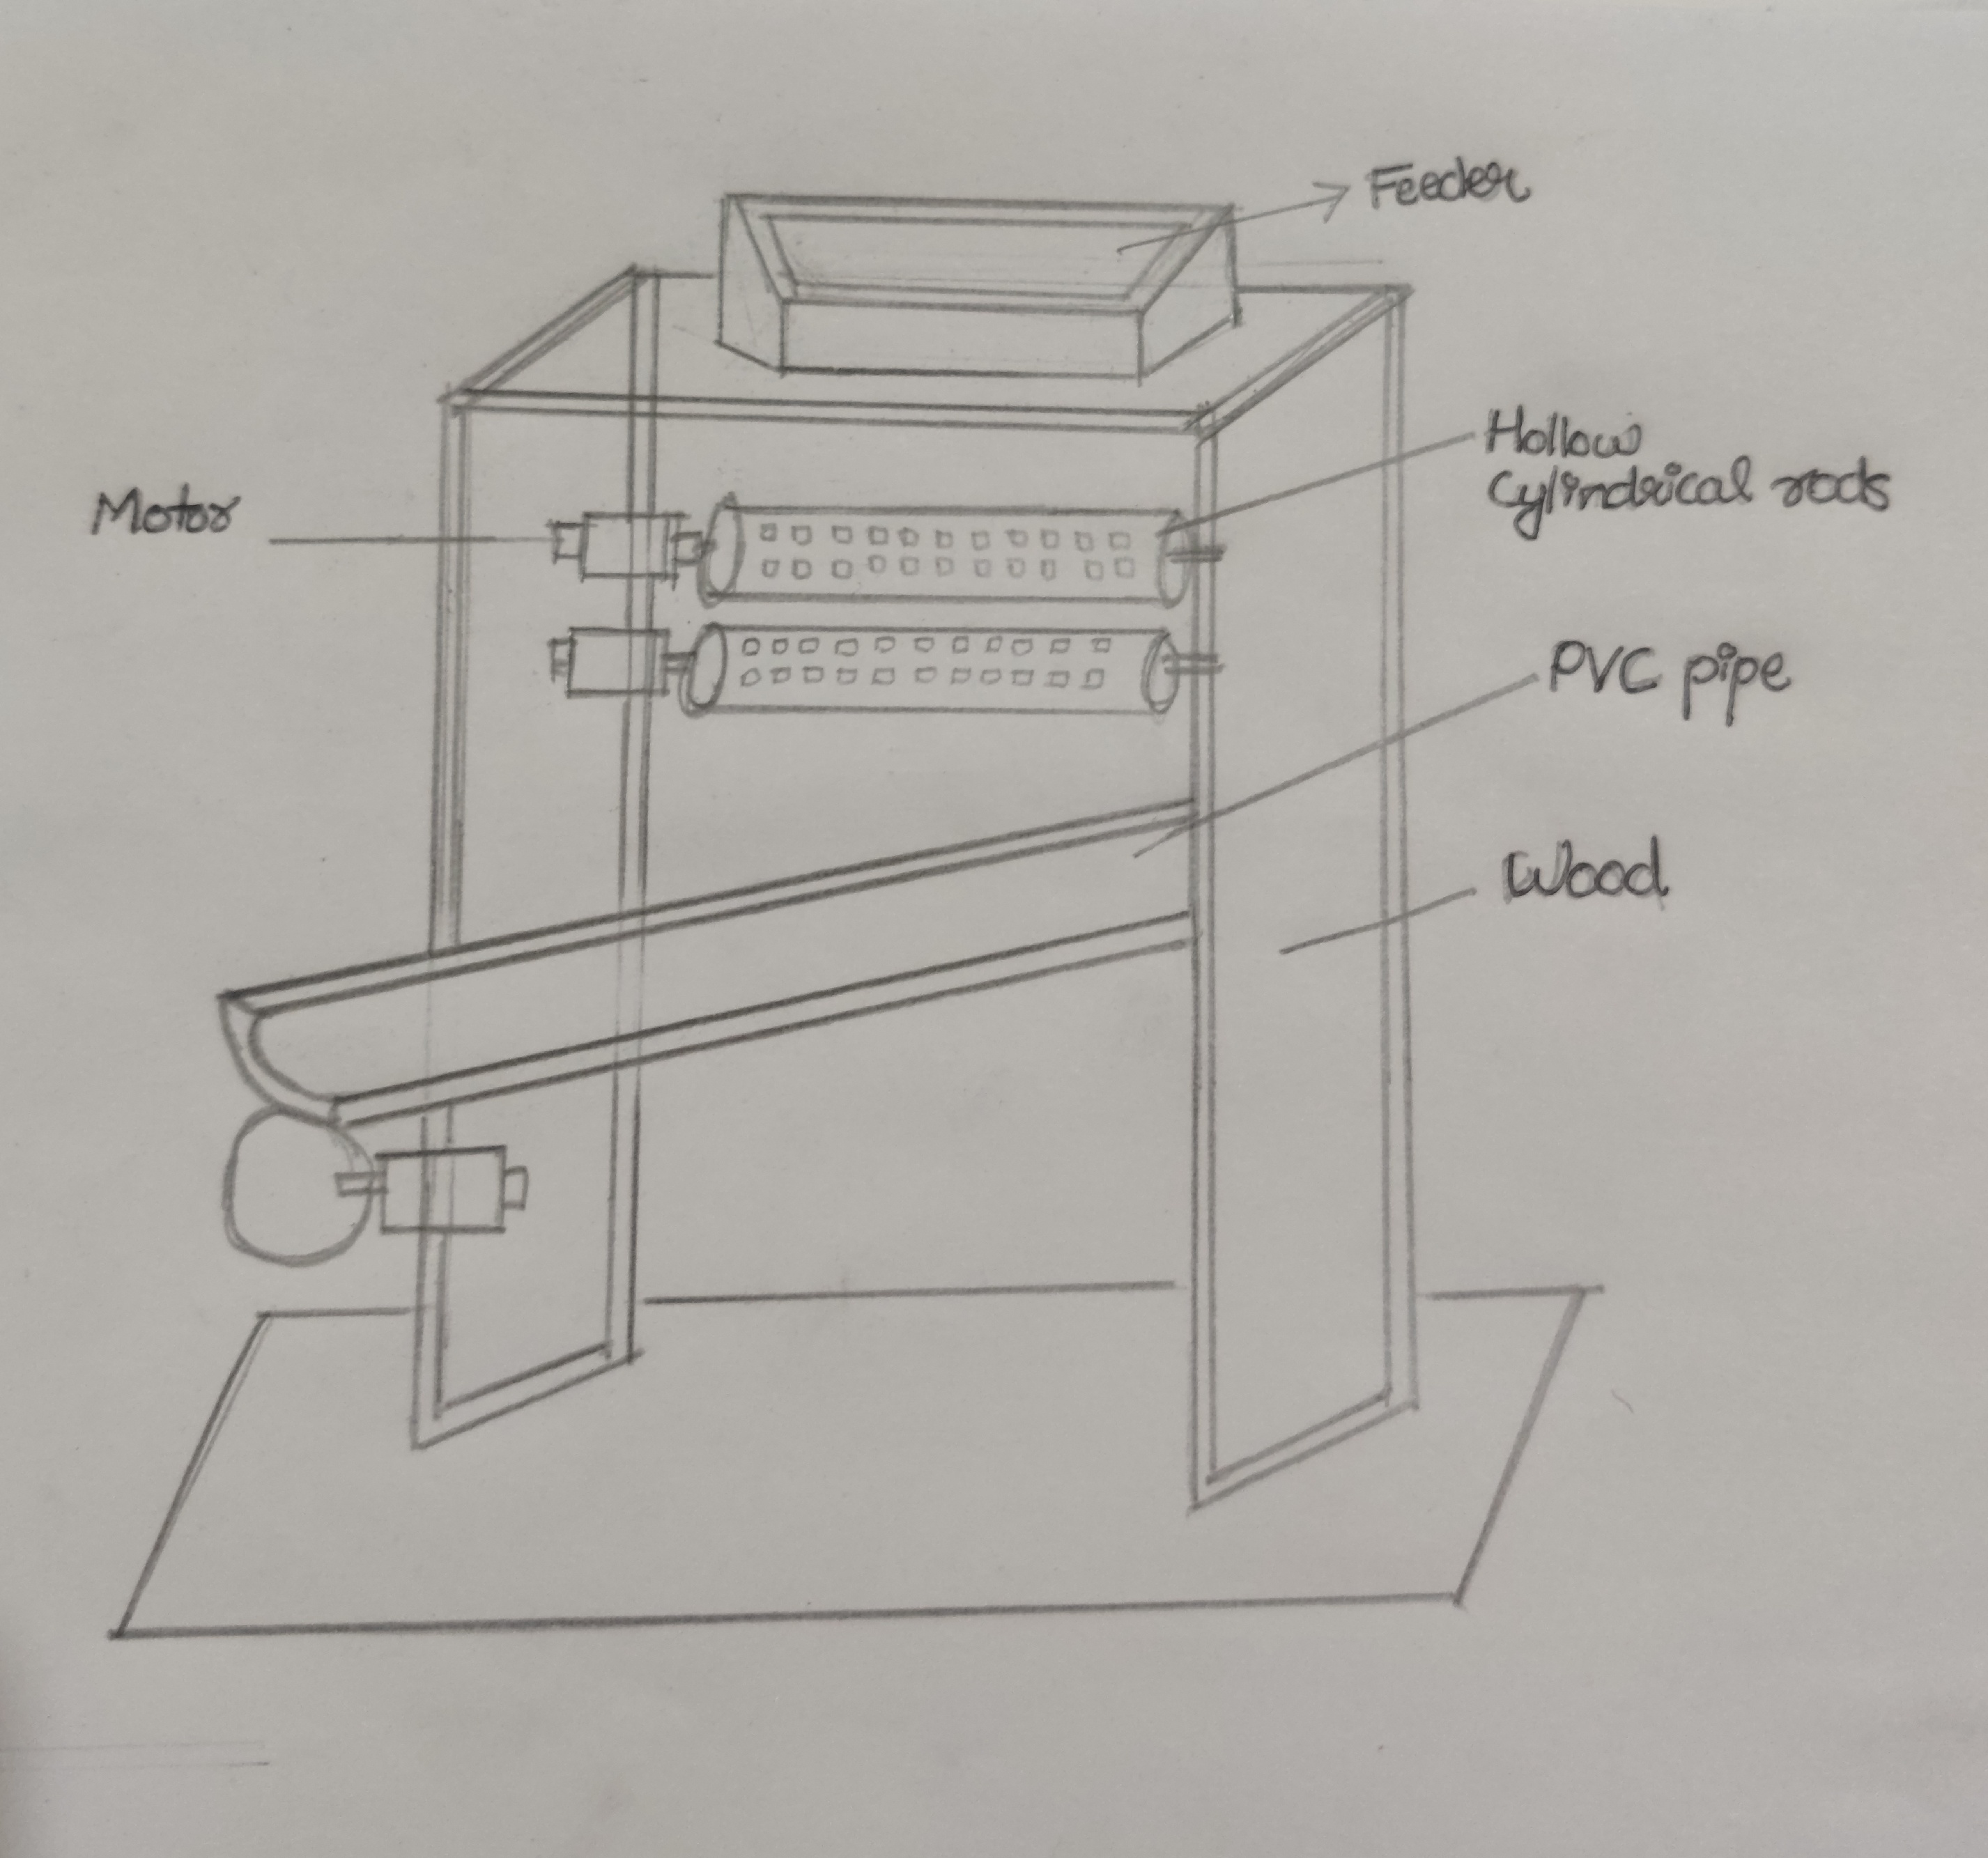 Feeder
Hollow
Cylindrical rods
Motor
PVC pipe
Wood